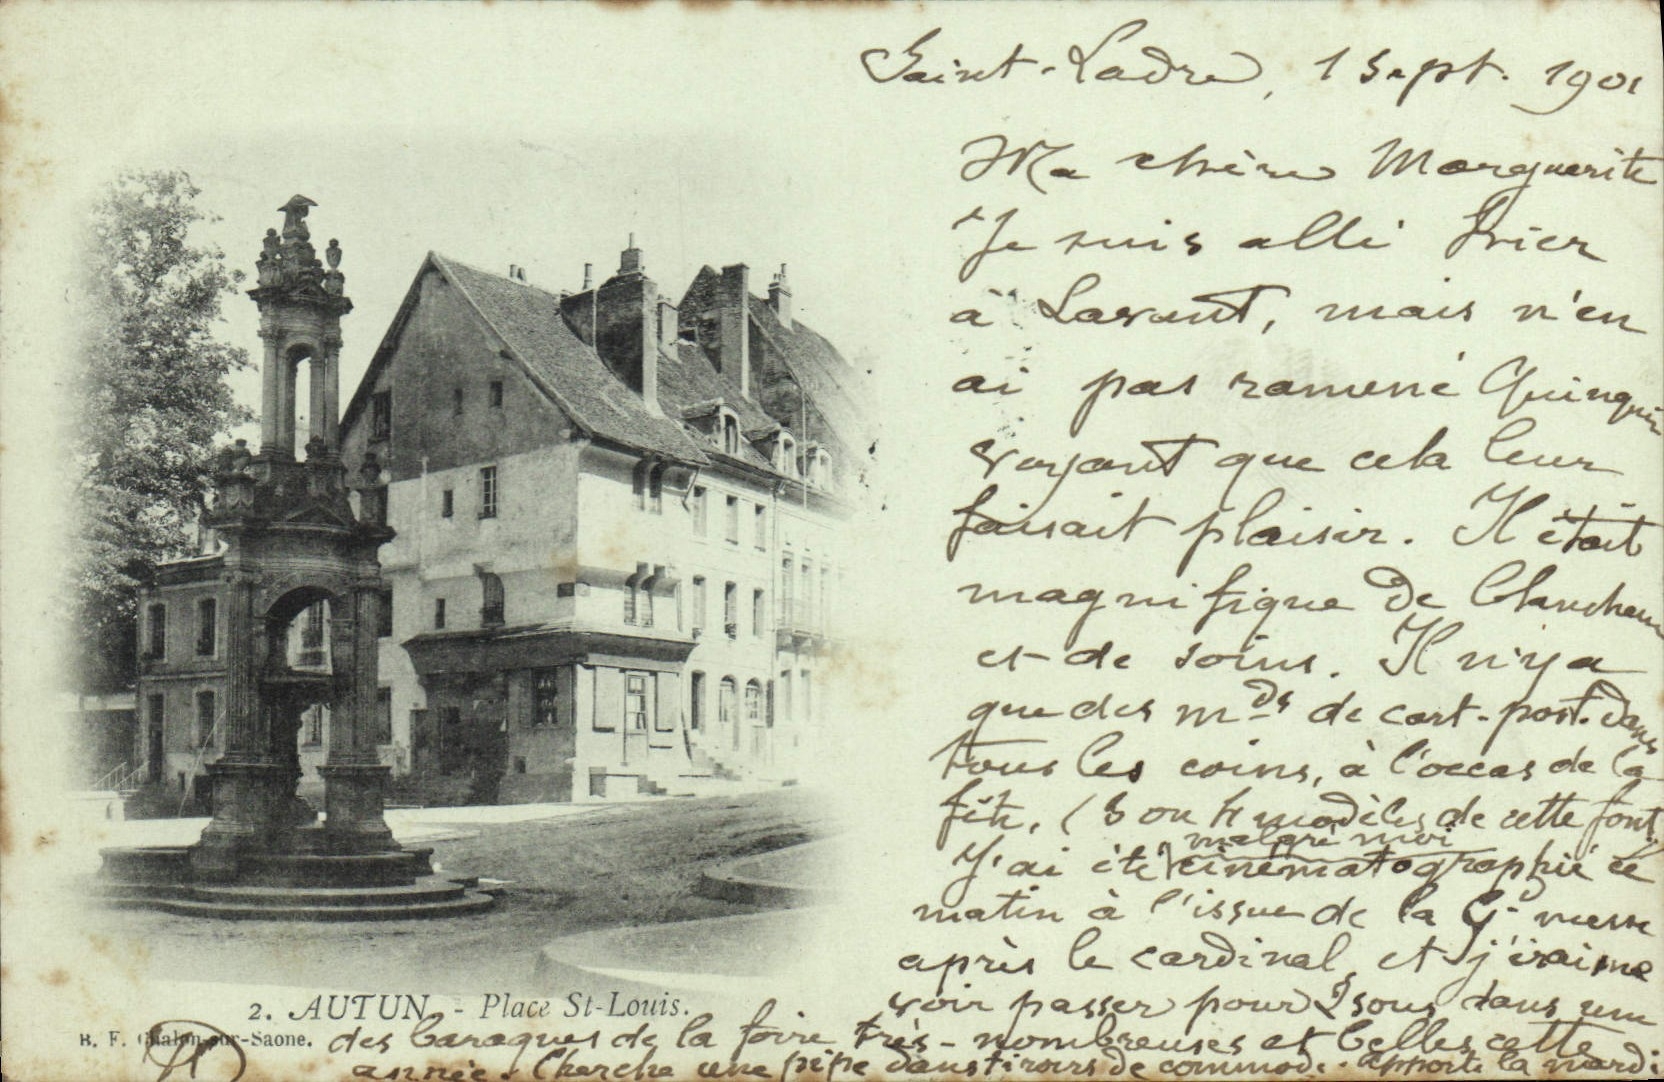 Saint-Ladre, 1 Sept. 1901
Ma chère Marguerite
Je suis allé hier
à Lavault, mais n'en
ai pas ramené
voyant que cela leur
faisait plaisir. Il était
magnifique de blancheur
et de soins. Il n'y a
que des mds de cart-post. dans
tous les coins, à l'occas de la
fête, (3 ou 4 modèles de cette font.
malgré moi
J'ai été cinématographié ce
matin à l'issue de la Gd messe
après le cardinal, et j'irai me
voir passer pour 2 sous dans une
2. AUTUN. - Place St-Louis.
B. F. Chalon-sur-Saone.
des baraques de la foire très-nombreuses et belles cette
année. Cherche une pipe dans tiroirs de commode. Apporte la mardi